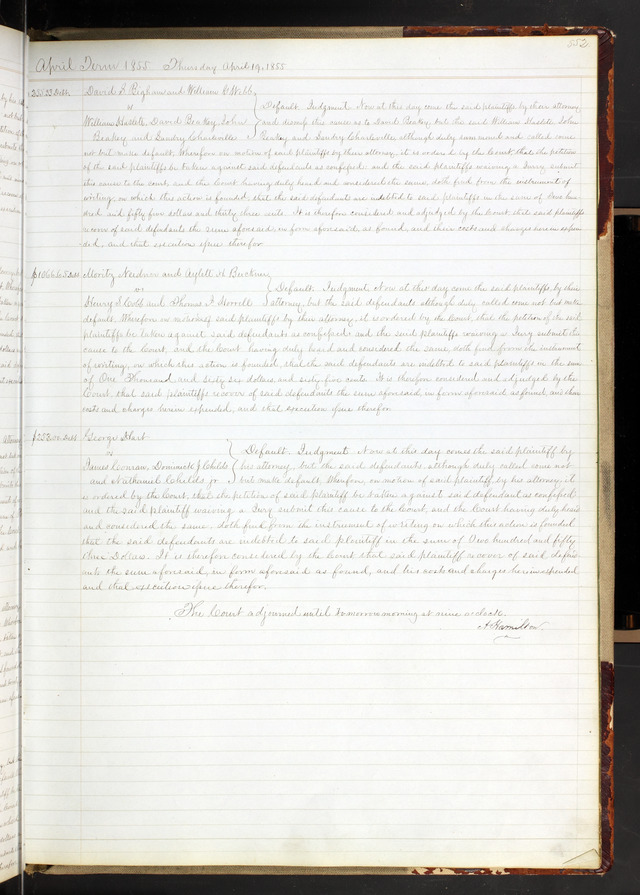 552
April Term 1855 Thursday April 19, 1855
255.33 Debt David I. Bigham and William C. Webb
vs Default. Judgment Now at this day come the said plaintiffs by their attorney
William Haslett, David Beakey, John and dismiss this cause as to David Beakey, but the said William Haslett, John
Beakey and Gundry Charleville Beakey and Gundry Charleville although duly summoned and called come
not but make default, Wherefore on motion of said plaintiffs by their attorney, it is ordered by the Court, that the petition
of the said plaintiffs be taken against said defendants as confessed and the said plaintiffs waiving a Jury submit
this cause to the court, and the Court having duly heard and considered the same, doth find from the instrument of
writing, on which this action is founded, that the said defendants are indebted to said plaintiffs in the sum of Two hun-
dred and fifty five dollars and thirty three cents. It is therefore considered and adjudged by the Court, that said plaintiffs
recover of said defendants the sum aforesaid in form aforesaid, as found, and their costs and charges herein expen
ded, and that execution issue therefor
$1066.65 Debt Moritz Neidner and Aylett H. Buckner
vs Default. Judgment. Now at this day come the said plaintiffs, by their
Henry S. Cobb and Thomas F. attorney, but the said defendants although duly called come not but make
default. Wherefore on motion of said plaintiffs by their attorney, it is ordered by the Court, that the petition of the said
plaintiffs be taken against said defendants as confessed and the said plaintiffs waiving a Jury submit this
cause to the Court, and the Court having duly heard and considered the same, doth find from the instrument
of writing, on which this action is founded, that the said defendants are indebted to said plaintiffs in the sum
of One Thousand and sixty six dollars and sixty five cents. It is therefore considered and adjudged by the
Court, that said plaintiffs recover of said defendants the sum aforesaid in form aforesaid as found, and their
costs and charges herein expended, and that execution issue therefor
$253.00 Debt George Hart
vs Default. Judgment Now at this day comes the said plaintiff by
James Conran, Dominick J. Childs his attorney, but the said defendants, although duly called come not
and Nathaniel Childs jr. but make default. Wherefore, on motion of said plaintiff, by his attorney, it
is ordered by the Court, that the petition of said plaintiff be taken against said defendant as confessed
and the said plaintiff waiving a Jury submit this cause to the Court, and the Court having duly heard
and considered the same, doth find from the instrument of writing on which this action is founded
that the said defendants are indebted to said plaintiff in the sum of Two hundred and fifty
three Dollars. It is therefore considered by the Court that said plaintiff recover of said defend
ants the sum aforesaid, in form aforesaid as found, and his costs and charges herein expended
and that execution issue therefor.
The Court adjourned until tomorrow morning at nine oclock.
A Hamilton